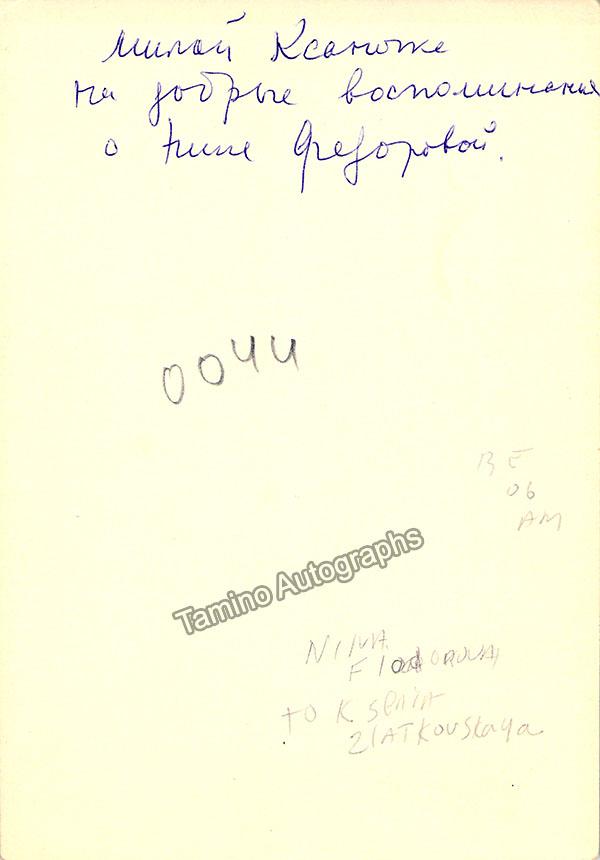 Милой Ксанюше
на добрые воспоминания
о Нине Федоровой.
0044
BE
06
AM
Tamino Autographs
NINA
FIODOROVA
TO KSENIA
ZLATKOVSKAYA